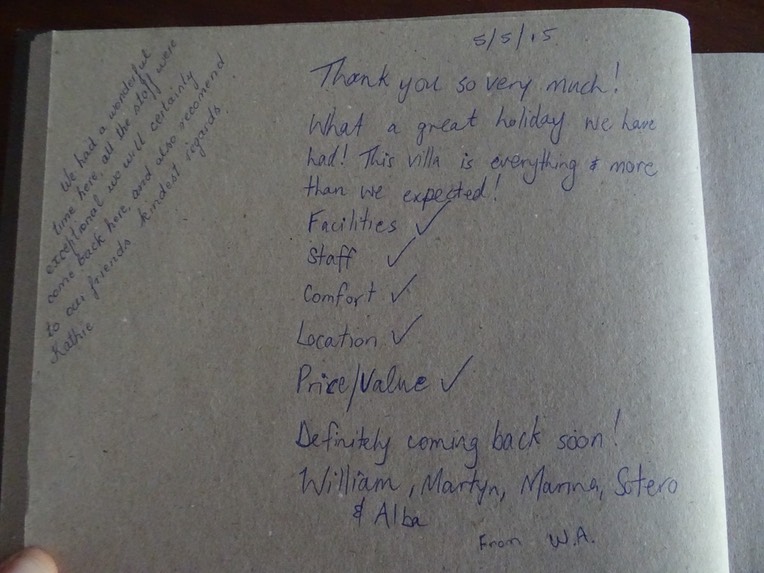 We had a wonderful
time here, all the staff were
exceptional we will certainly
come back here, and also recomend
to our friends kindest regards
Kathie
5/5/15
Thank you so very much!
What a great holiday we have
had! This villa is everything & more
than we expected!
Facilities ✓
Staff ✓
Comfort ✓
Location ✓
Price/Value ✓
Definitely coming back soon!
William, Martyn, Marina, Sotero
& Alba
From W.A.